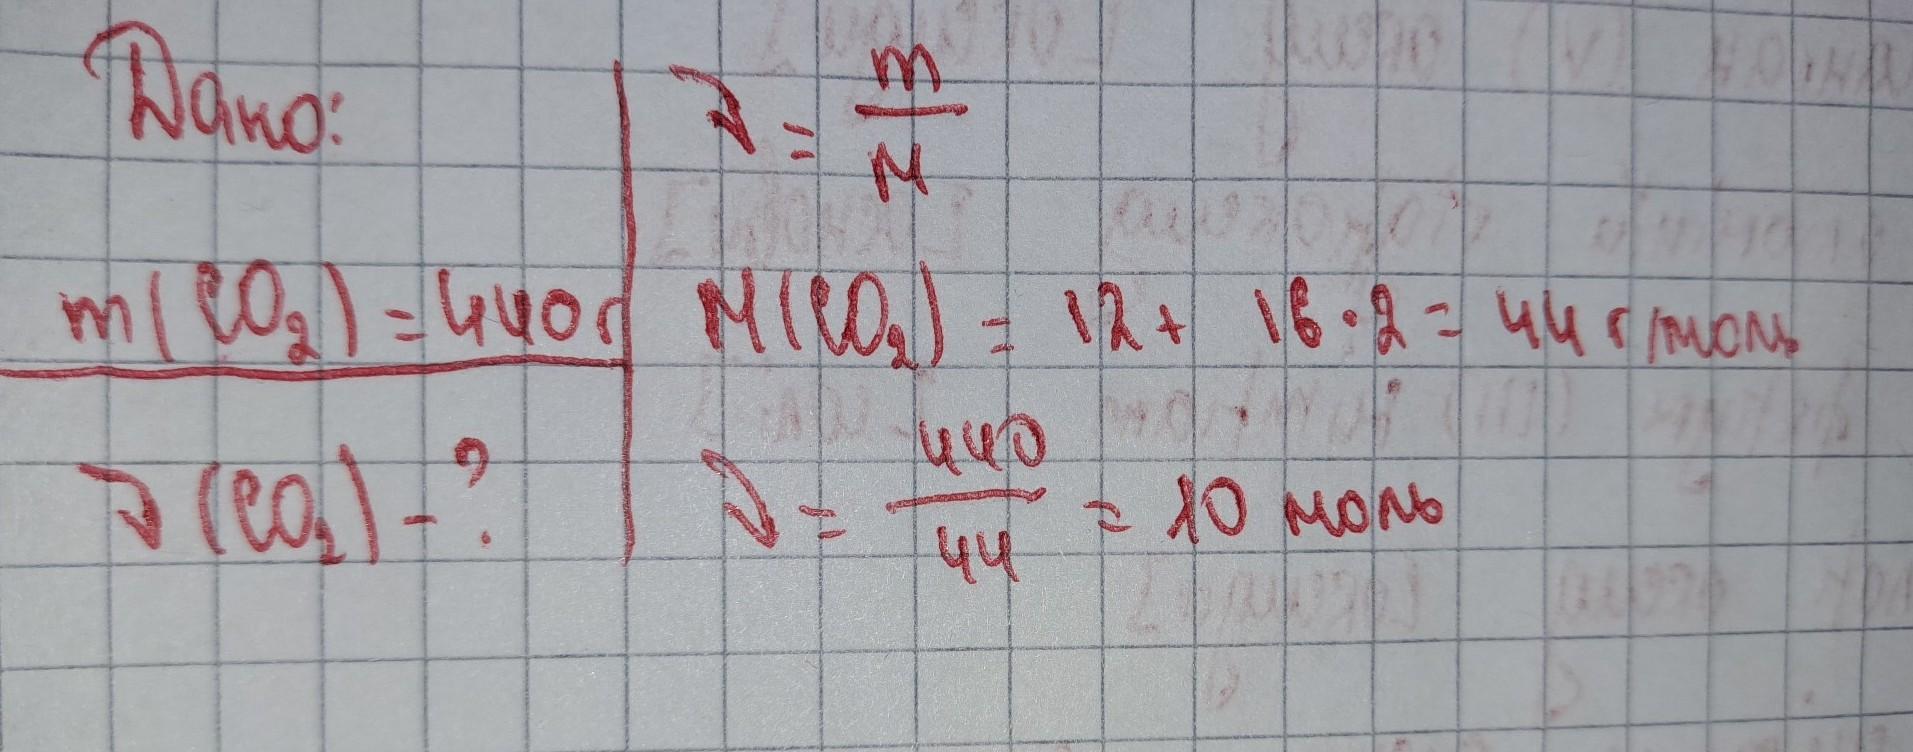 Дано:
m(CO₂) = 440 г
ν(CO₂) - ?
ν = m/M
M(CO₂) = 12 + 16 · 2 = 44 г/моль
ν = 440/44 = 10 моль